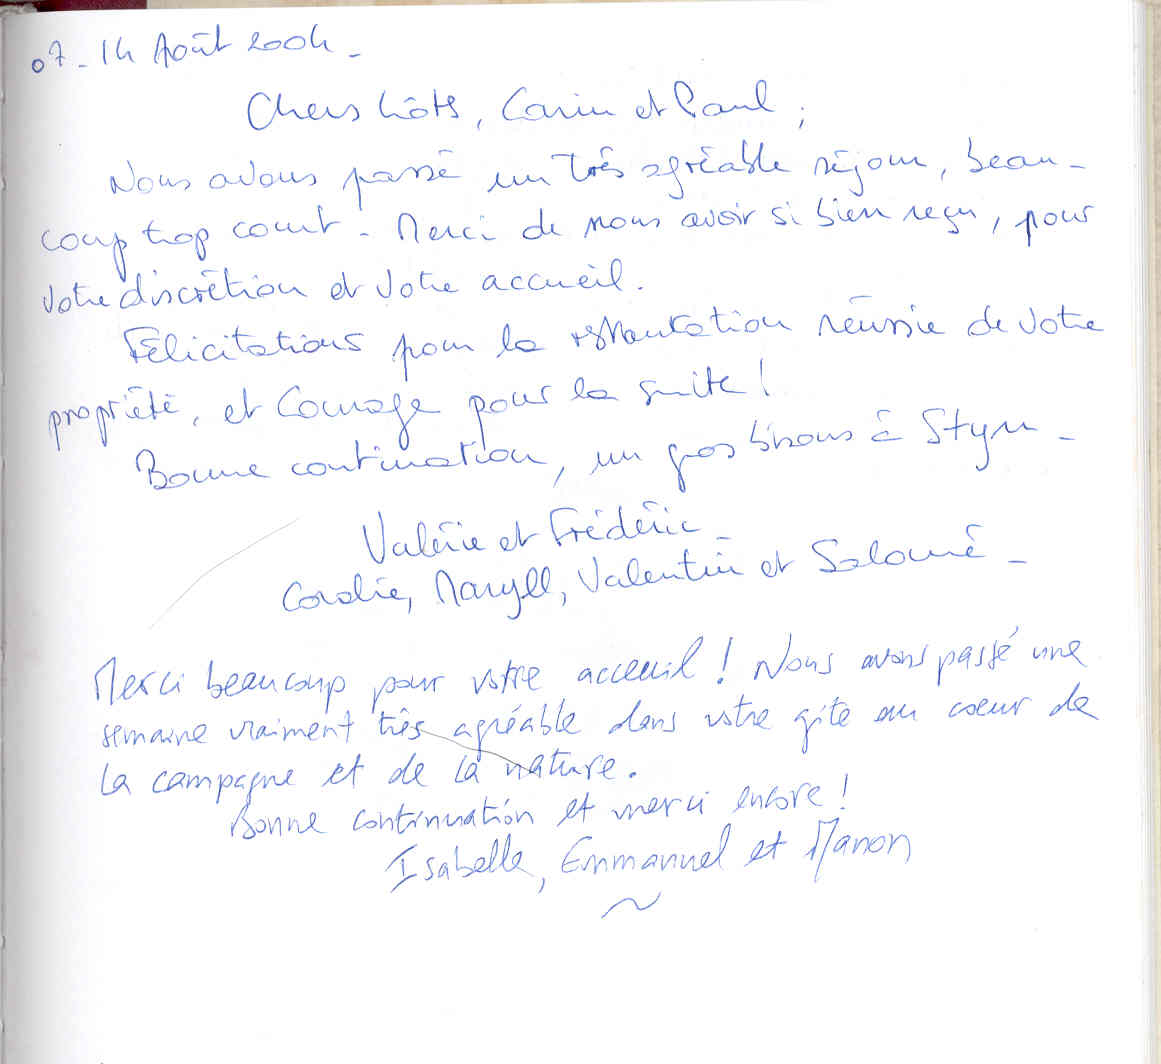 07 - 14 Août 2004 -
Chers hôtes, Carin et Paul,
Nous avons passé un très agréable séjour, beau-
coup trop court. Merci de nous avoir si bien reçu, pour
votre discrétion et votre accueil.
Félicitations pour la restauration réussie de votre
propriété, et Courage pour la suite !
Bonne continuation, un gros bisous à Styn -
Valérie et Frédéric -
Coralie, Maryll, Valentin et Salomé -
Merci beaucoup pour votre acceuil ! Nous avons passé une
semaine vraiment très agréable dans votre gite au coeur de
la campagne et de la nature.
Bonne continuation et merci encore !
Isabelle, Emmanuel et Manon